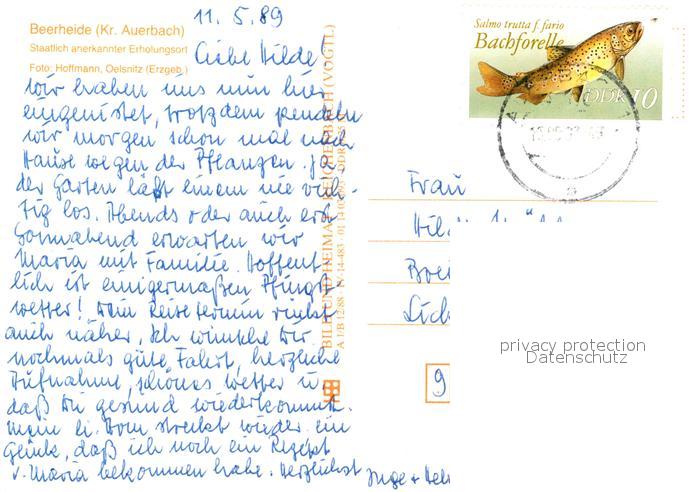 11. 5. 89
Beerheide (Kr. Auerbach)
Staatlich anerkannter Erholungsort
Foto: Hoffmann, Oelsnitz (Erzgeb.)
Liebe Hilde!
Wir haben uns nun hier
eingenistet, trotzdem pendeln
wir morgen schon mal nach
Hause wegen der Pflanzen. Ja
der Garten läßt einem nie rich-
tig los. Abends oder auch erst
Sonnabend erwarten wir
Maria mit Familie. Hoffent-
lich ist einigermaßen Pfingst-
wetter! Dein Reisetermin rückt
auch näher. Ich wünsche Dir
nochmals gute Fahrt, herzliche
Aufnahme, schönes Wetter u.
daß Du gesund wiederkommst.
Mein li. streikt wieder ein
Glück, daß ich noch ein Rezept
v. Maria bekommen habe. Herzlichst Inge +
BILD UND HEIMAT REICHENBACH (VOGTL)
A 1/B 12/88 IV-14-483
Salmo trutta f. fario
Bachforelle
DDR 10
Frau
9
privacy protection
Datenschutz